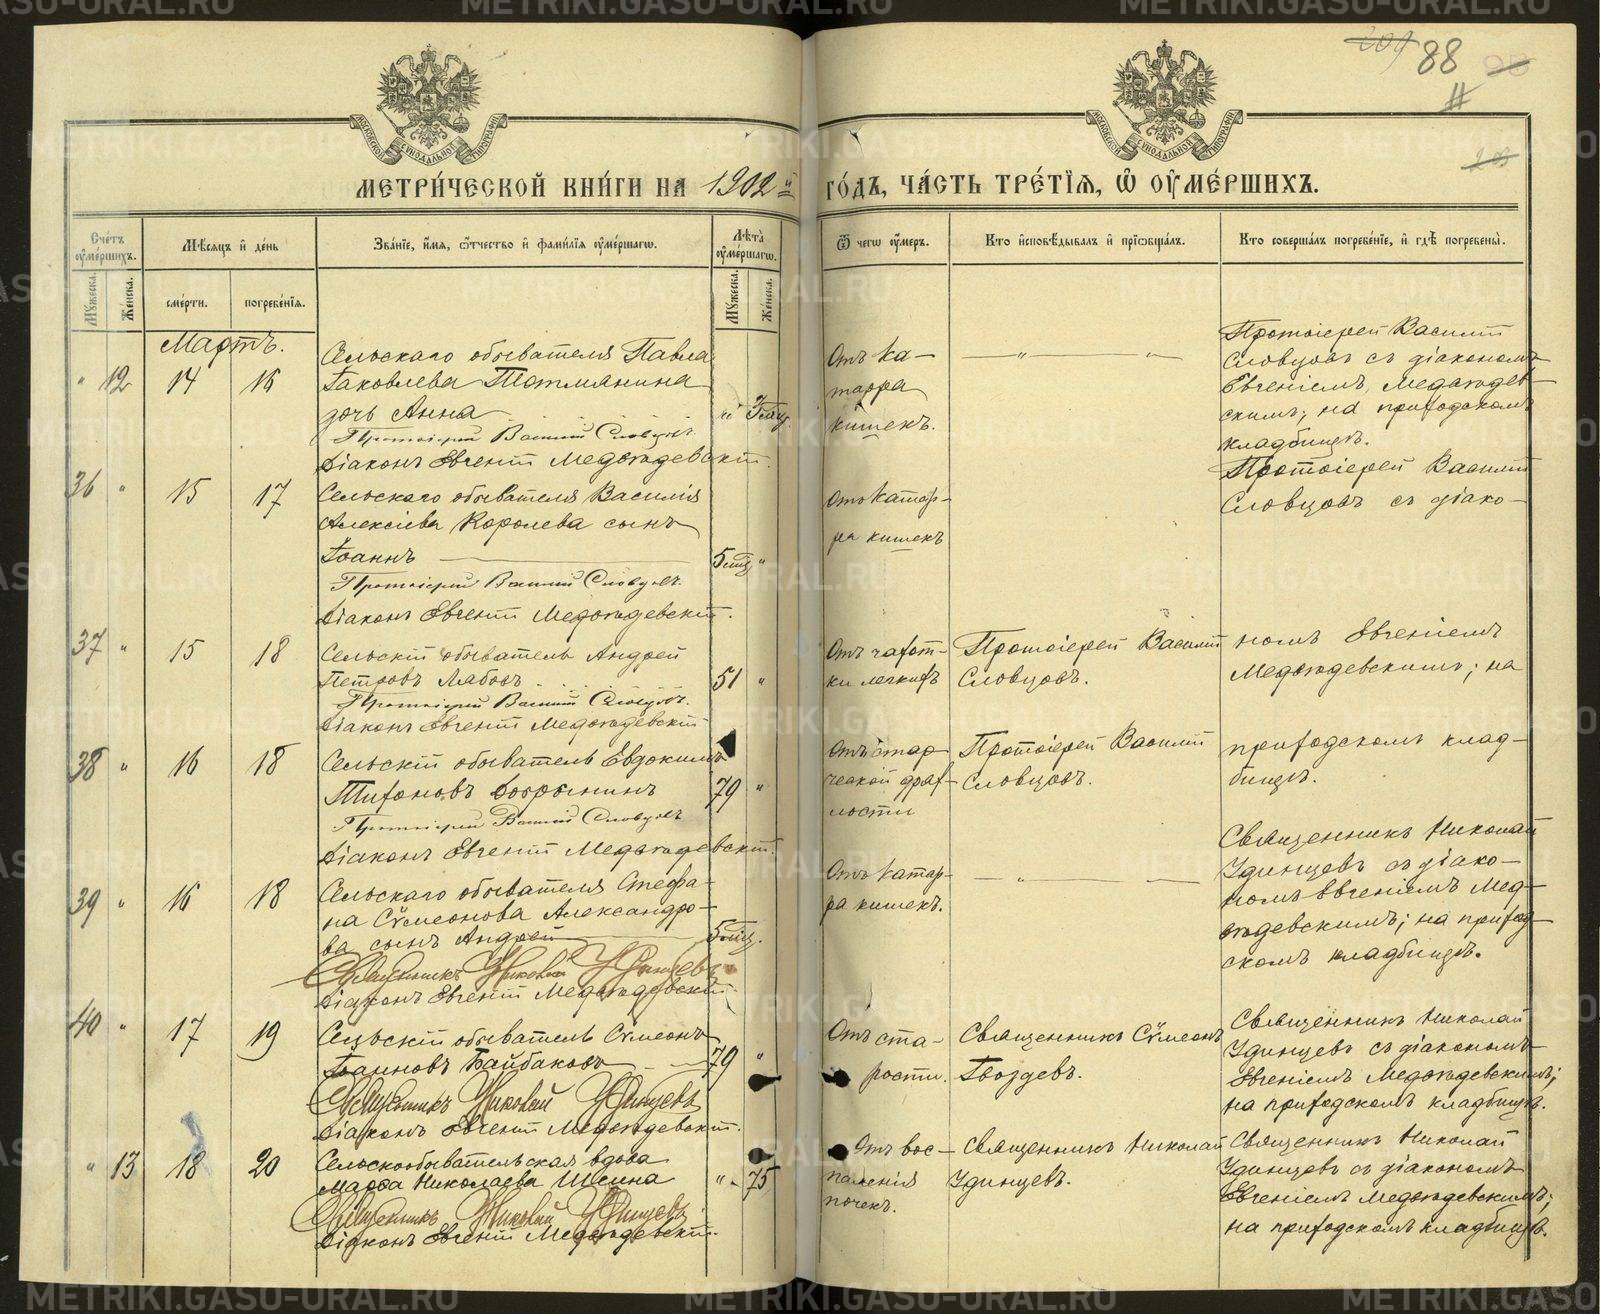 209 88 98
Н
203
МОСКОВСКОЙ СѴНОДАЛЬНОЙ ТИПОГРАФІИ
МОСКОВСКОЙ СѴНОДАЛЬНОЙ ТИПОГРАФІИ
МЕТРИ́ЧЕСКОЙ КНИ́ГИ НА 1902й ГО́ДЪ, ЧА́СТЬ ТРЕ́ТІЯ, Ѡ҆ ОУ҆МЕ́РШИХЪ.
Сче́тъ оу҆ме́ршихъ.
Мꙋ́жеска.
Же́нска.
Мѣ́сяцъ и҆ де́нь
сме́рти.
погребе́нїя.
Зва́нїе, и҆́мя, ѻ҆́тчество и҆ фами́лїя оу҆ме́ршагѡ.
Лѣ́та оу҆ме́ршагѡ.
Мꙋ́жеска.
Же́нска.
Ѿ чегѡ̀ оу҆́меръ.
Кто̀ и҆сповѣ́дывалъ и҆ прїѡбща́лъ.
Кто̀ соверша́лъ погребе́нїе, и҆ гдѣ̀ погребены̀.
Мартъ.
" 12 14 16
Сельскаго обывателя Павла
Іаковлева Татмянина
дочь Анна
" 3 мѣс.
Протоіерей Василій Словцовъ.
Діаконъ Евгеній Медвѣдевскій.
Отъ ка-
тарра
кишекъ.
— " — " —
Протоіерей Василій
Словцовъ съ діакономъ
Евгеніемъ Медвѣдев-
скимъ; на приходскомъ
кладбищѣ.
36 " 15 17
Сельскаго обывателя Василія
Алексіева Королева сынъ
Іоаннъ
5 мѣс. "
Протоіерей Василій Словцовъ.
Діаконъ Евгеній Медвѣдевскій.
Отъ катар-
ра кишекъ
Протоіерей Василій
Словцовъ съ діако-
37 " 15 18
Сельскій обыватель Андрей
Петровъ Лабовъ
51 "
Протоіерей Василій Словцовъ.
Діаконъ Евгеній Медвѣдевскій
Отъ чахот-
ки легкихъ
Протоіерей Василій
Словцовъ.
номъ Евгеніемъ
Медвѣдевскимъ; на
38 " 16 18
Сельскій обыватель Евдокимъ
Тихоновъ Добрынинъ
79 "
Протоіерей Василій Словцовъ
Діаконъ Евгеній Медвѣдевскій.
Отъ стар-
ческой дрях-
лости
Протоіерей Василій
Словцовъ.
приходскомъ клад-
бищѣ.
39 " 16 18
Сельскаго обывателя Стефа-
на Сѵмеонова Александро-
ва сынъ Андрей
5 мѣс.
Священникъ Николай Удинцевъ
Діаконъ Евгеній Медвѣдевскій.
Отъ катар-
ра кишекъ.
— " —
Священникъ Николай
Удинцевъ съ діако-
номъ Евгеніемъ Мед-
вѣдевскимъ; на приход-
скомъ кладбищѣ.
40 " 17 19
Сельскій обыватель Сѵмеонъ
Іоанновъ Байбаковъ
79 "
Священникъ Николай Удинцевъ
Діаконъ Евгеній Медвѣдевскій.
Отъ ста-
рости.
Священникъ Сѵмеонъ
Гвоздевъ.
Священникъ Николай
Удинцевъ съ діакономъ
Евгеніемъ Медвѣдевскимъ;
на приходскомъ кладбищѣ.
" 13 18 20
Сельскообывательская вдова
Марѳа Николаева Шеина
" 75
Священникъ Николай Удинцевъ.
Діаконъ Евгеній Медвѣдевскій.
Отъ вос-
паленія
почекъ.
Священникъ Николай
Удинцевъ.
Священникъ Николай
Удинцевъ съ діакономъ
Евгеніемъ Медвѣдевскимъ;
на приходскомъ кладбищѣ.
METRIKI.GASO-URAL.RU